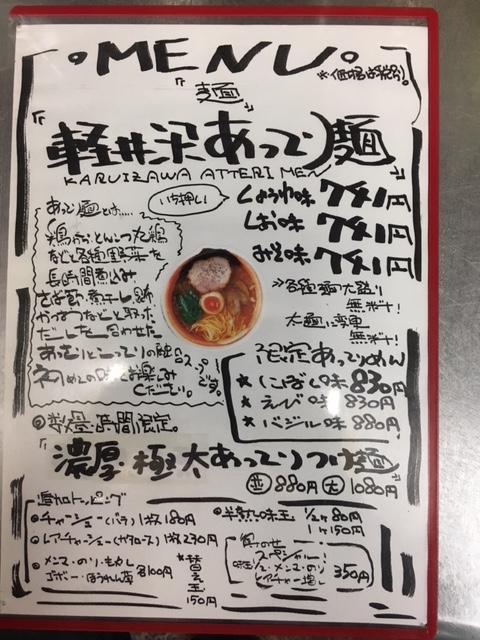 MENU
※価格は税別。
『麺』
『軽井沢あってり麺』
KARUIZAWA ATTERI MEN
いち押し
しょうゆ味 741円
しお味 741円
みそ味 741円
あってり麺とは……
鶏がら、とんこつ、丸鶏
などと各種野菜を
長時間煮込み
さば節、煮干し、鯖
かつおなどで取った
だしを合わせた
あっさりとこってりの融合スープです。
初めての味をお楽しみ
ください。
≫各種麺大盛り
無料!
太麺に変更
無料!
限定あってりめん
★にぼし味 830円
★えび味 830円
★バジル味 880円
◎数量・時間限定。
『濃厚極太あってりつけ麺』
並 880円 大 1080円
追加トッピング
●チャーシュー(バラ)1枚180円
●レアチャーシュー(肩ロース)1枚230円
●メンマ・のり・もやし
コーン・ほうれん草 各100円
*替え玉
150円
●半熟味玉 1/2ヶ80円
1ヶ150円
全のせ
スペシャル!
味玉1/2・メンマ・のり
レアチャー増し
350円